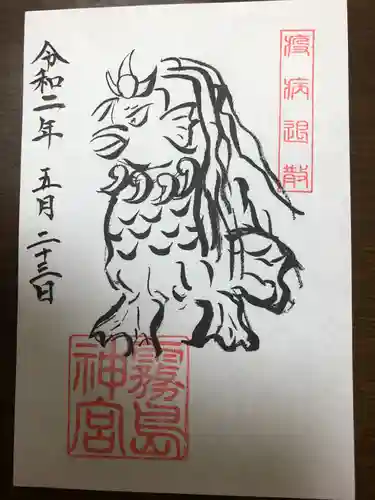 疫病退散
令和二年 五月二十三日
霧島
神宮